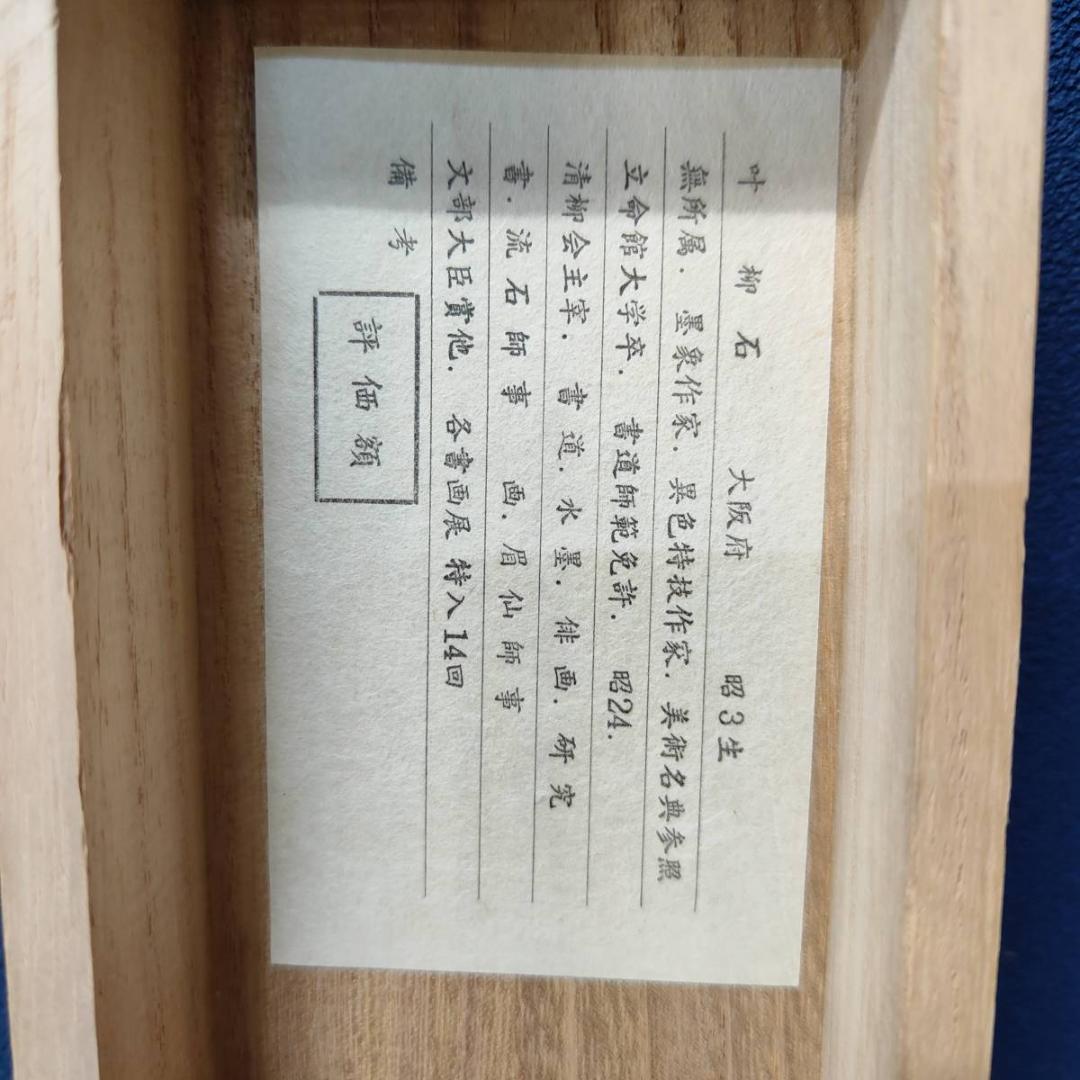 叶 柳 石 大阪府 昭3生
無所属. 墨象作家. 異色特技作家. 美術名典参照
立命館大学卒. 書道師範免許. 昭24.
清柳会主宰. 書道. 水墨. 俳画. 研究
書. 流石師事 画. 眉仙師事
文部大臣賞他. 各書画展 特入14回
備考
評価額